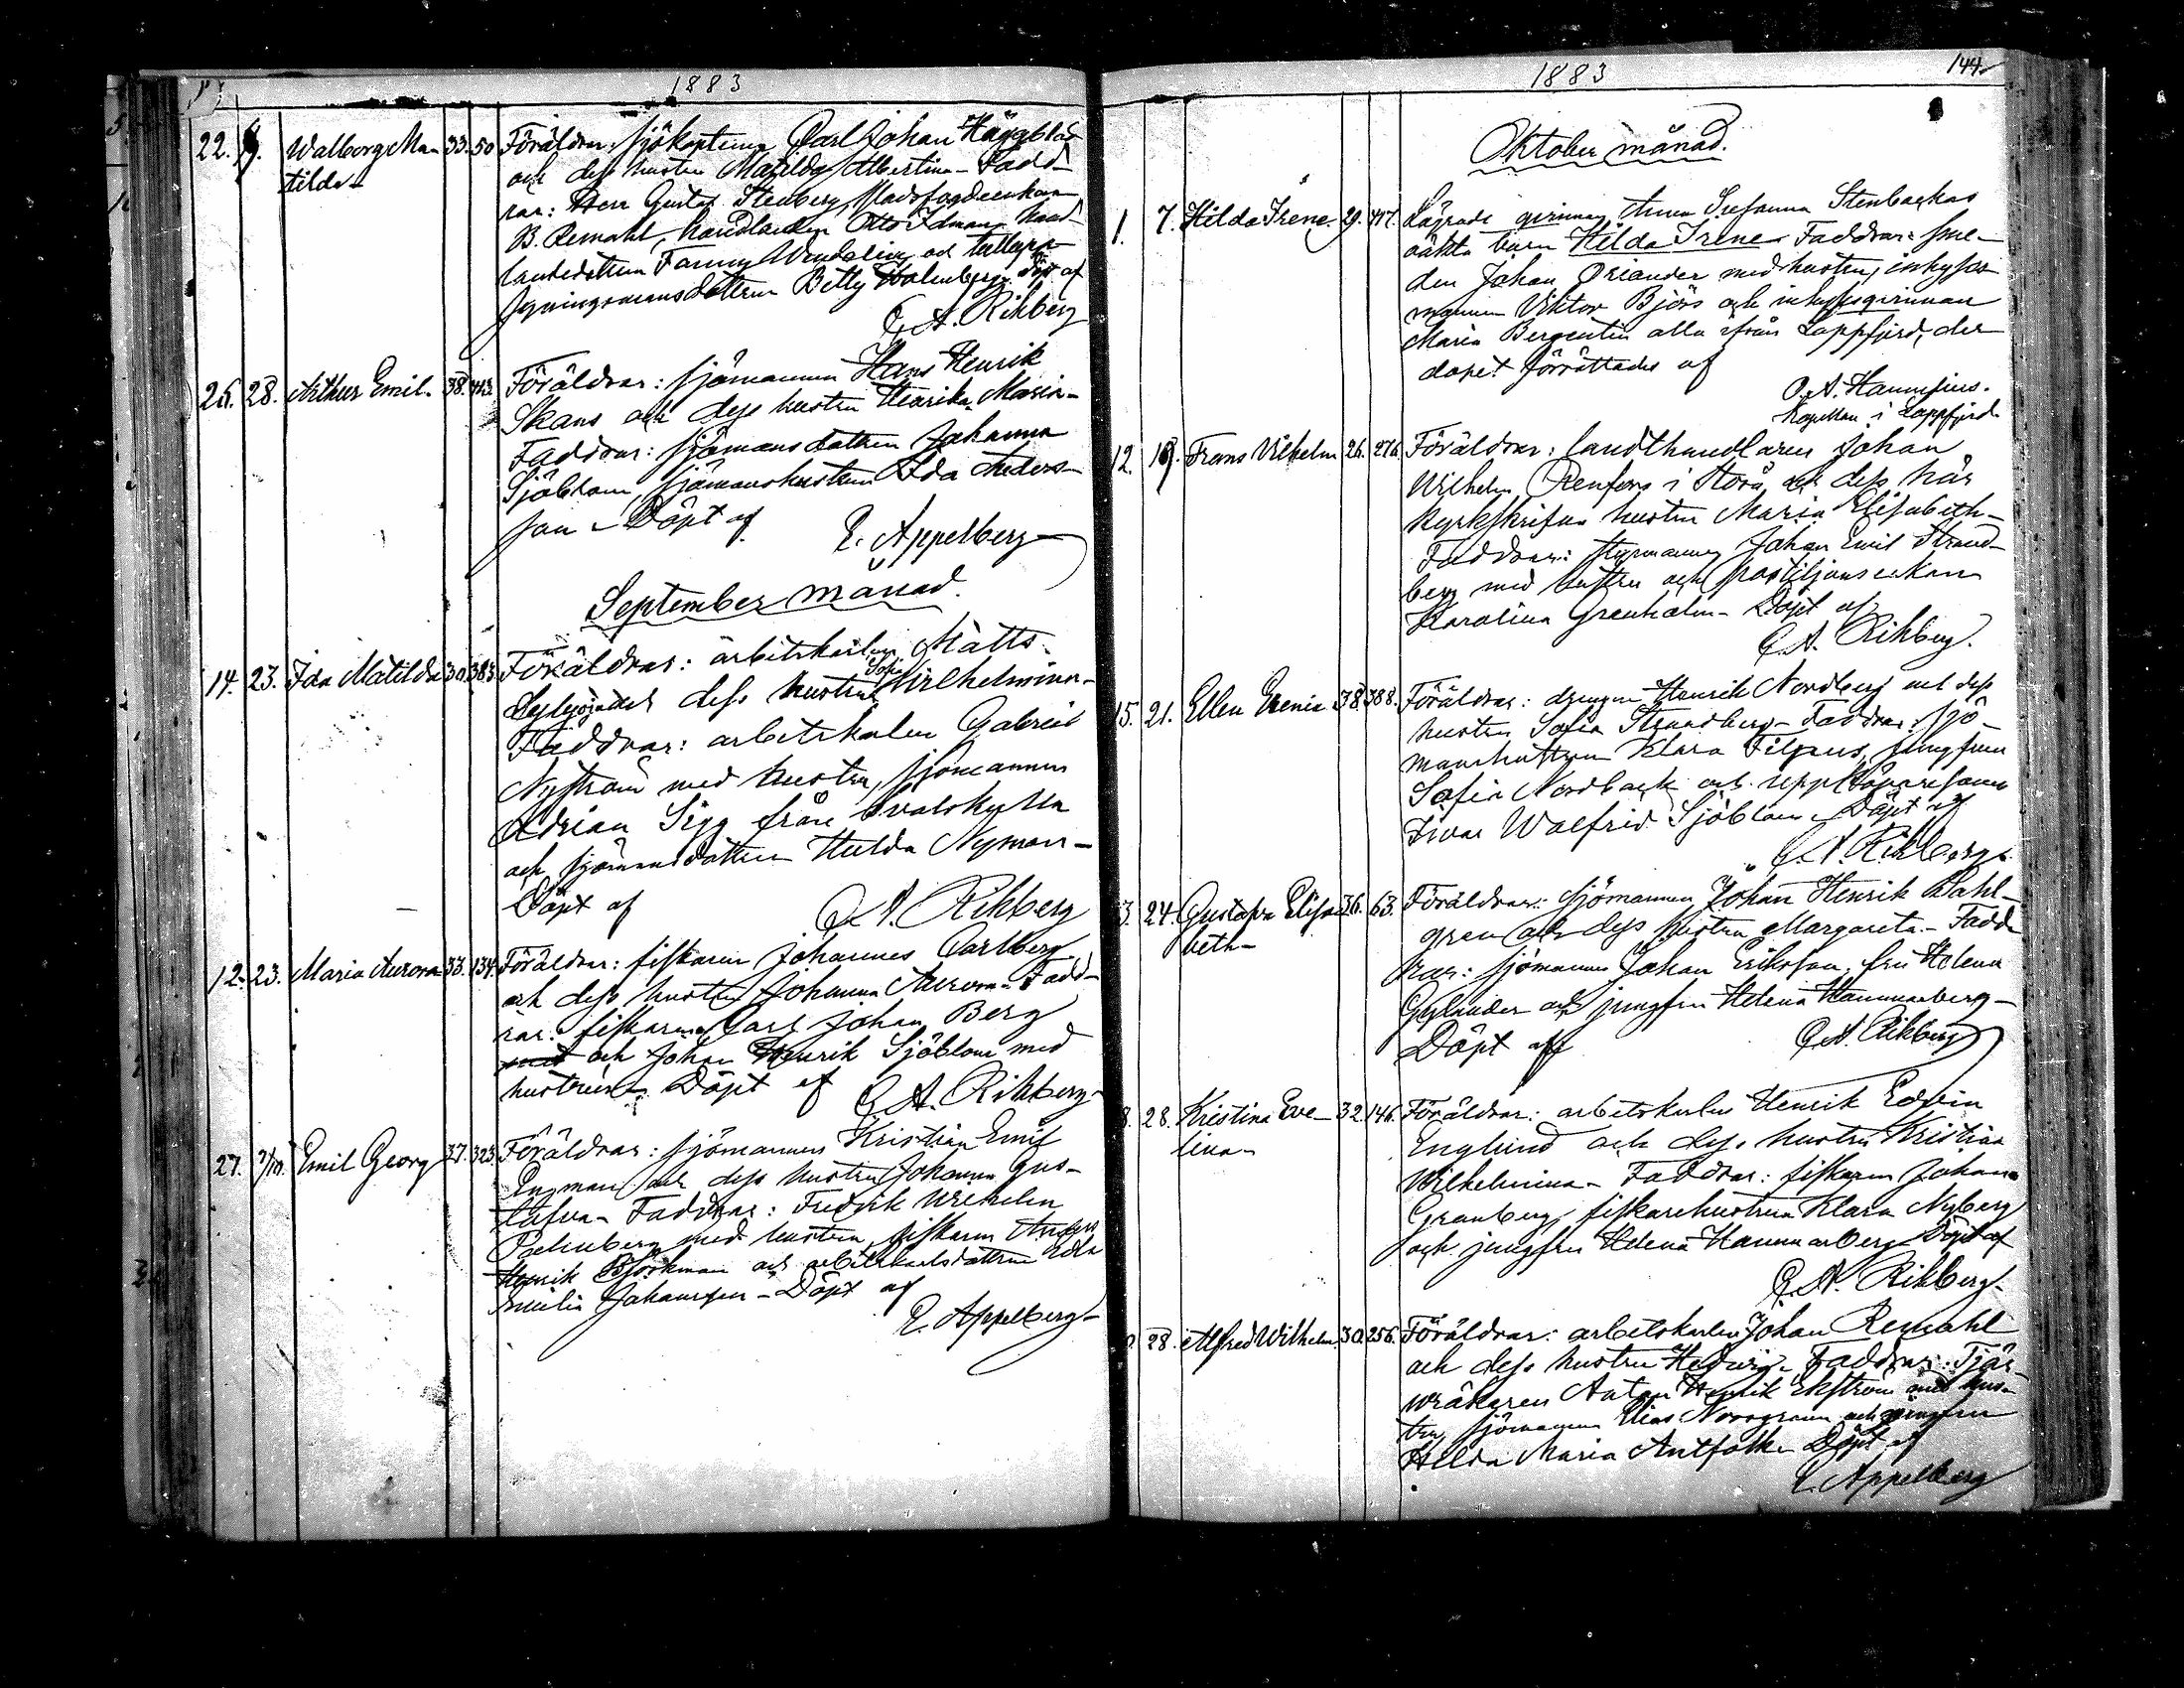 1883
22. 9. Walborg Ma- 33. 50 Föräldrar: Sjökaptenen Carl Johan Häggblad
tilda- och dess hustru Matilda Albertina- Fadd-
rar: Herr Gustaf Stenberg,
B. Remahl, handlanden Otto Idman,
Fanny Wendelin och
Betty Döpt af
G. A. Rikberg
25. 28. Arthur Emil. 38. 413. Föräldrar: sjömannen Hans Henrik
Skans och dess hustru Henrika Maria-
Faddrar: sjömansdottern Johanna
Sjöblom, sjömanshustrun Ida Anders-
son - Döpt af E. Appelberg-
September månad.
14. 23. Ida Matilda 30. 383. Föräldrar: arbetskarlen Matts
och dess hustru Sofia Wilhelmina-
Faddrar: arbetskarlen Gabriel
Nyström med hustru, sjömannen
Adrian Sigg från Svalskulla
och sjömansdottern Hulda Nyman-
Döpt af G. A. Rikberg
12. 23. Maria Aurora 33. 134. Föräldrar: fiskaren Johannes Carlberg
och dess hustru Johanna Aurora- Fadd-
rar: fiskarena Carl Johan Berg
med och Johan Henrik Sjöblom med
hustrur- Döpt af G. A. Rikberg-
27. 7/10. Emil Georg 37. 323. Föräldrar: sjömannen Kristian Emil
Engman och dess hustru Johanna Gus-
tafva- Faddrar: Fredrik Wilhelm
med hustru, fiskaren Anders
Henrik Björkman och arbetskarlsdottren Edla
Emilia Johansson - Döpt af
E. Appelberg-
1883 144.
Oktober månad.
1. 7. Hilda Irene. 29. 417. Lägrade qvinnan Anna Susanna Stenbackas
oäkta barn Hilda Irene- Faddrar: sme-
den Johan Oriander med hustru, inhyses
mannen Viktor Björs och inhysesqvinnan
Maria Bergentin alla ifrån Lappfjerd, der
dopet förrättades af
O. A. Hannfsius.
Kapellan i Lappfjerd
12. 19. Frans Vilhelm 26. 276. Föräldrar: landthandlaren Johan
Wilhelm Renfors i Storå och dess här
kyrkskrifna hustru Maria Elisabeth-
Faddrar: styrmannen Johan Emil Strand-
berg med hustru och postiljonsenkan
Karolina Granholm- Döpt af
G. A. Rikberg.
15. 21. Ellen Irenia 38. 388. Föräldrar: drengen Henrik Nordberg och dess
hustru Sofia Strandberg- Faddrar: sjö-
manshustrun Klara Filpus, jungfrun
Sofia Nordback och uppköparesonen
Ivar Walfrid Sjöblom- Döpt af
G. A. Rikberg.
3. 24. Gustafva Elisa- 36. 63. Föräldrar: sjömannen Johan Henrik Dahl-
beth- gren och dess hustru Margareta- Fadd-
rar: sjömannen Johan Eriksson, fru Helena
Gylander och jungfru Helena Hammarberg-
Döpt af G. A. Rikberg
8. 28. Kristina Eve- 32. 146. Föräldrar: arbetskarlen Henrik Edvin
lina- Englund och dess hustru Kristina
Wilhelmina- Faddrar: fiskaren Johan
Granberg, fiskarehustrun Klara Nyberg
och jungfru Helena Hammarberg- Döpt af
G. A. Rikberg-
28. Alfred Wilhelm 30. 256. Föräldrar: arbetskarlen Johan Remahl
och dess hustru Hedvig- Faddrar: Tjär-
vräkaren Anton Henrik Ekström med hus-
tru, sjömannen Elias Norrgrann och jungfrun
Hilda Maria Antfolk- Döpt af
E. Appelberg